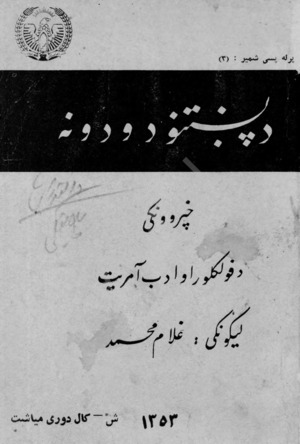 پرله پسې شمېر : (۳)
د پښتنو دودونه
خپروونکی
د فولکلور او ادب آمریت
لیکونکی : غلام محمد
۱۳۵۳ ش – کال دوری میاشت